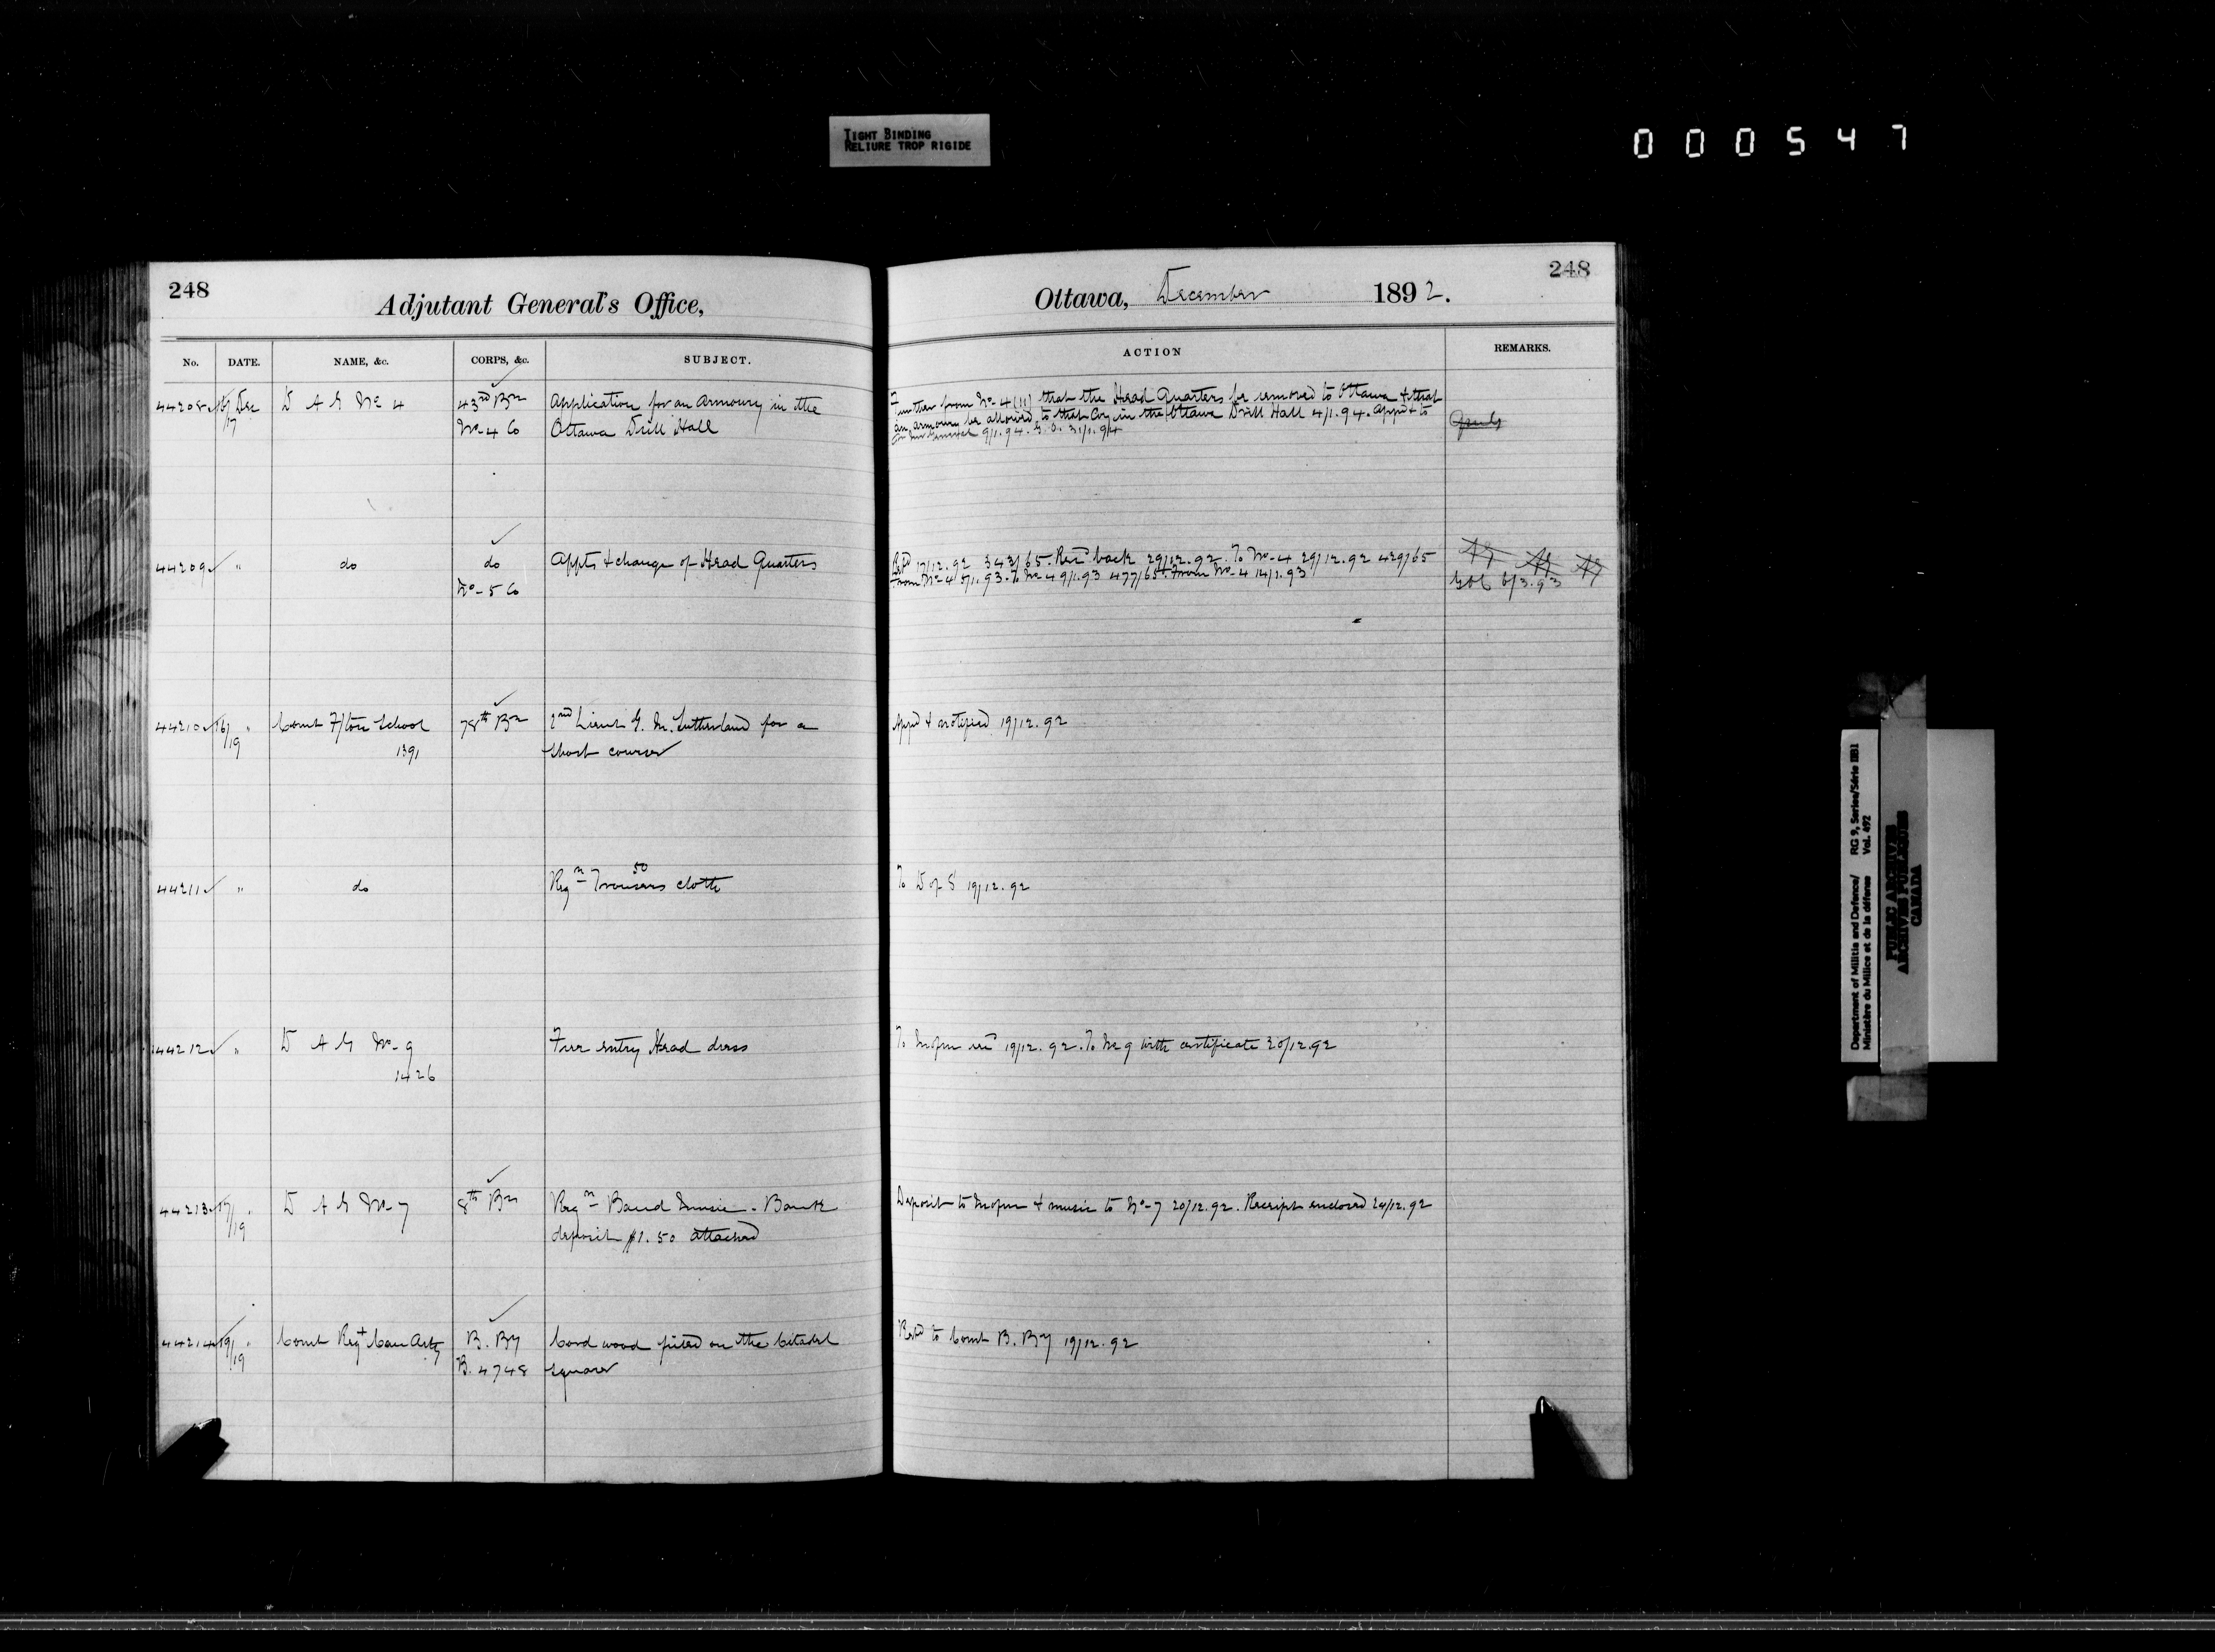 TIGHT BINDING
RELIURE TROP RIGIDE
000547
248
Adjutant General's Office,
No. DATE. NAME, &c. CORPS, &c. SUBJECT.
44208 Dec 17 D A G No 4 43rd Bn Application for an armoury in the
No- 4 Co Ottawa Drill Hall
44209 " do do Appts & change of Head Quarters
No- 5 Co
44210 16/19 " Comt F/ton School 78th Bn 2nd Lieut G. M. Sutherland for a
1391 short course
44211 " do Reqn Trousers cloth 50
44212 " D A G No- 9 Free entry Head dress
1426
44213 17/19 " D A G No- 7 8th Bn Reqn Band Music - Bank
deposit $1.50 attached
44214 19/19 " Comt Regt Can Arty B. By Cord wood piled on the Citadel
B. 4748 square
Ottawa, December 1892.
248
ACTION REMARKS.
Further from No- 4 (11) that the Head Quarters be removed to Ottawa & that
an armoury be allowed to that Coy in the Ottawa Drill Hall 4/1.94. Appd & to
9/1.94. G. O. 31/1.94
Retd 17/12.92 343/65. Recd back 29/12.92. To No- 4 29/12.92 429/65
From No- 4 5/1.93. To No- 4 9/1.93 477/65. From No- 4 14/1.93
GOC 6/3.93
Appd & notified 19/12.92
To D of S 19/12.92
To 19/12.92. To No 9 with certificate 20/12.92
Deposit to & music to No- 7 20/12.92. Receipt enclosed 24/12.92
Retd to Comt B. By 19/12.92
Department of Militia and Defence/ RG 9, Series/Série IIB1
Ministère du Milice et de la défense Vol. 492
PUBLIC ARCHIVES
ARCHIVES PUBLIQUES
CANADA